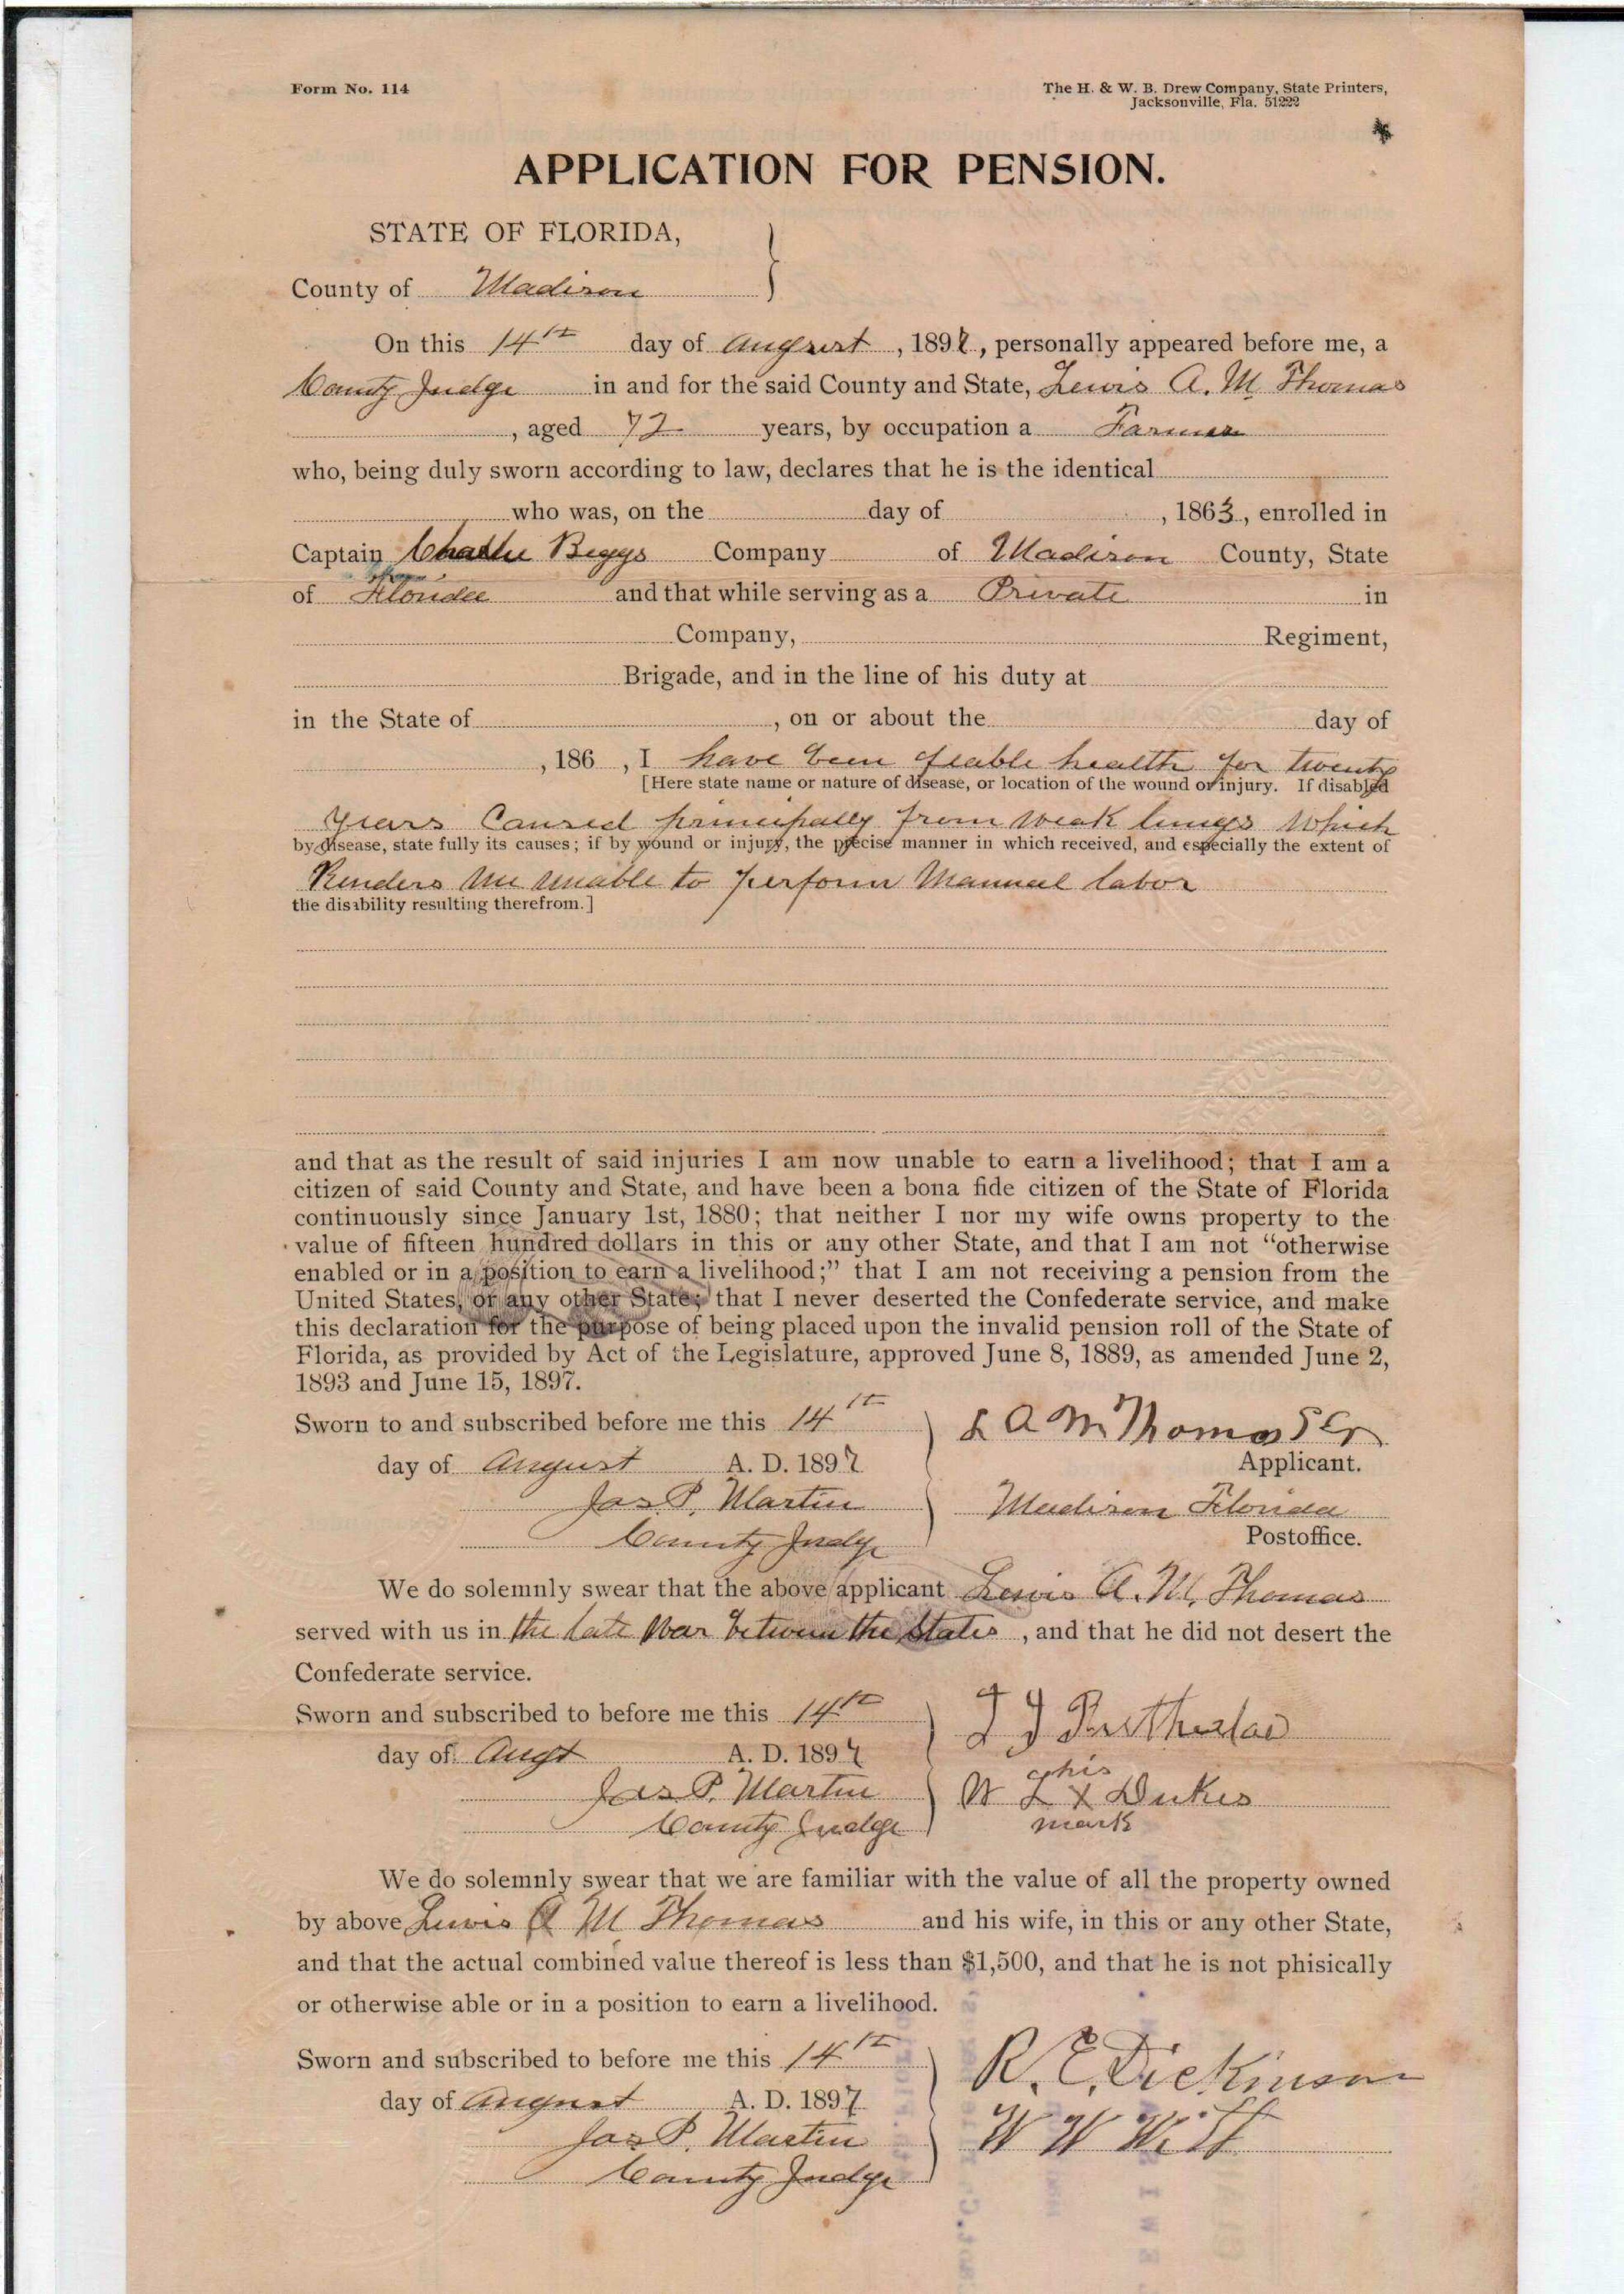 Form No. 114
The H. & W. B. Drew Company, State Printers,
Jacksonville, Fla. 51222
APPLICATION FOR PENSION.
STATE OF FLORIDA,
County of Madison
On this 14th day of August, 1897, personally appeared before me, a
County Judge in and for the said County and State, Lewis A. M. Thomas
, aged 72 years, by occupation a Farmer
who, being duly sworn according to law, declares that he is the identical
who was, on the day of , 1863, enrolled in
Captain Beggs Company of Madison County, State
of Florida and that while serving as a Private in
Company, Regiment,
Brigade, and in the line of his duty at
in the State of , on or about the day of
, 186 , I have been feable health for twenty
[Here state name or nature of disease, or location of the wound or injury. If disabled
years Caused principally from weak lungs which
by disease, state fully its causes; if by wound or injury, the precise manner in which received, and especially the extent of
Renders me unable to perform Manual labor
the disability resulting therefrom.]
and that as the result of said injuries I am now unable to earn a livelihood; that I am a
citizen of said County and State, and have been a bona fide citizen of the State of Florida
continuously since January 1st, 1880; that neither I nor my wife owns property to the
value of fifteen hundred dollars in this or any other State, and that I am not "otherwise
enabled or in a position to earn a livelihood;" that I am not receiving a pension from the
United States, or any other State; that I never deserted the Confederate service, and make
this declaration for the purpose of being placed upon the invalid pension roll of the State of
Florida, as provided by Act of the Legislature, approved June 8, 1889, as amended June 2,
1893 and June 15, 1897.
Sworn to and subscribed before me this 14th L A M Thomas Sr
day of August A. D. 1897 Applicant.
Jas. P. Martin Madison Florida
County Judge Postoffice.
We do solemnly swear that the above applicant Lewis A. M. Thomas
served with us in the late War between the States, and that he did not desert the
Confederate service.
Sworn and subscribed to before me this 14th
day of Augt A. D. 1897
his
Jas P. Martin W L X Dukes
County Judge mark
We do solemnly swear that we are familiar with the value of all the property owned
by above Lewis A M Thomas and his wife, in this or any other State,
and that the actual combined value thereof is less than $1,500, and that he is not phisically
or otherwise able or in a position to earn a livelihood.
Sworn and subscribed to before me this 14th R. E. Dickinson
day of August A. D. 1897
Jas P. Martin W W
County Judge